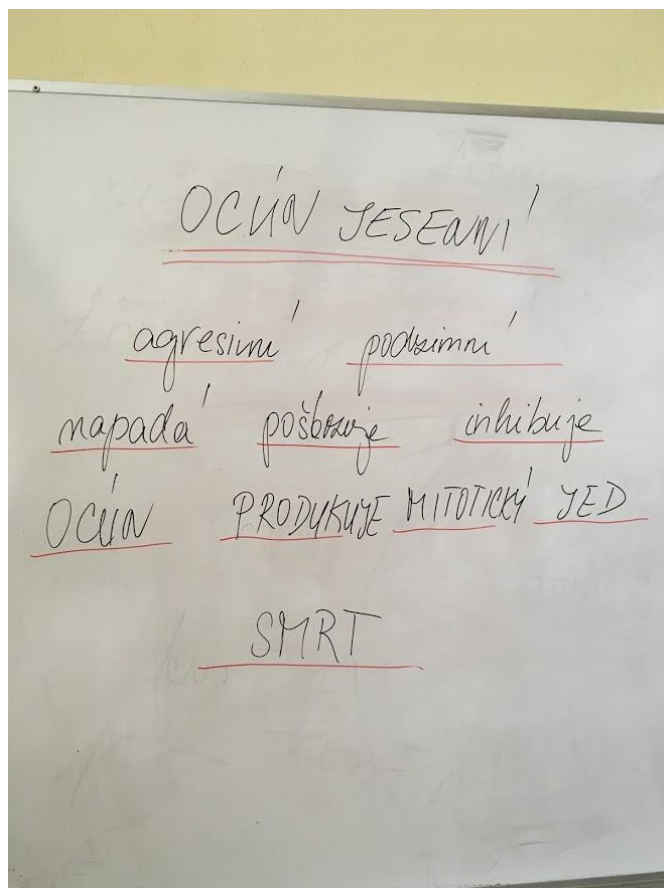 OCÚN JESENNÍ
agresivní podzimní
napadá poškozuje inhibuje
OCÚN PRODUKUJE MITOTICKÝ JED
SMRT